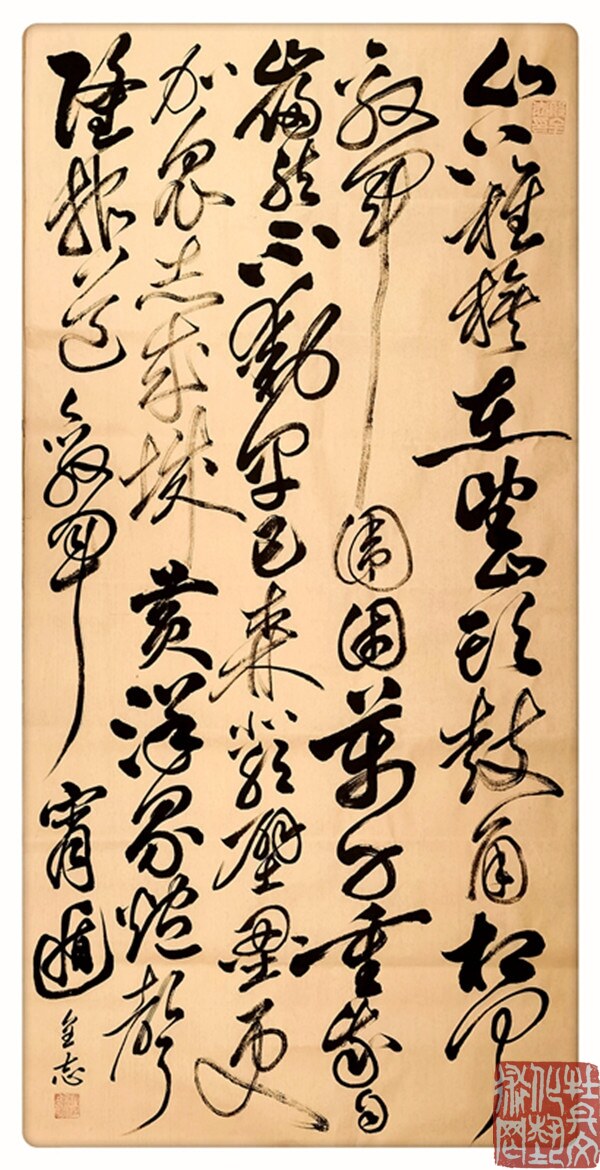 山下旌旗在望山头鼓角相闻
敌军围困萬千重我自
巋然不動早已森严壁壘更
加眾志成城黄洋界炮声
隆报道敌军宵遁
全志